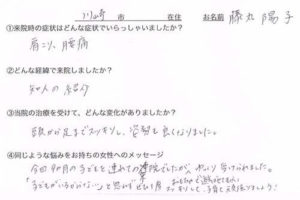 川崎 市 在住 お名前 藤丸 陽子
①来院時の症状はどんな症状でいらっしゃいましたか？
肩こり、腰痛
②どんな経緯で来院しましたか？
知人の紹介
③当院の治療を受けて、どんな変化がありましたか？
頭から足までスッキリし、姿勢も良くなりました。
④同じような悩みをお持ちの女性へのメッセージ
今回 ヶ月の子どもを連れての来院でしたが、 受けられました。
「子どもがいるからムリ」と思わず
スッキリして、子育て頑張りましょう！